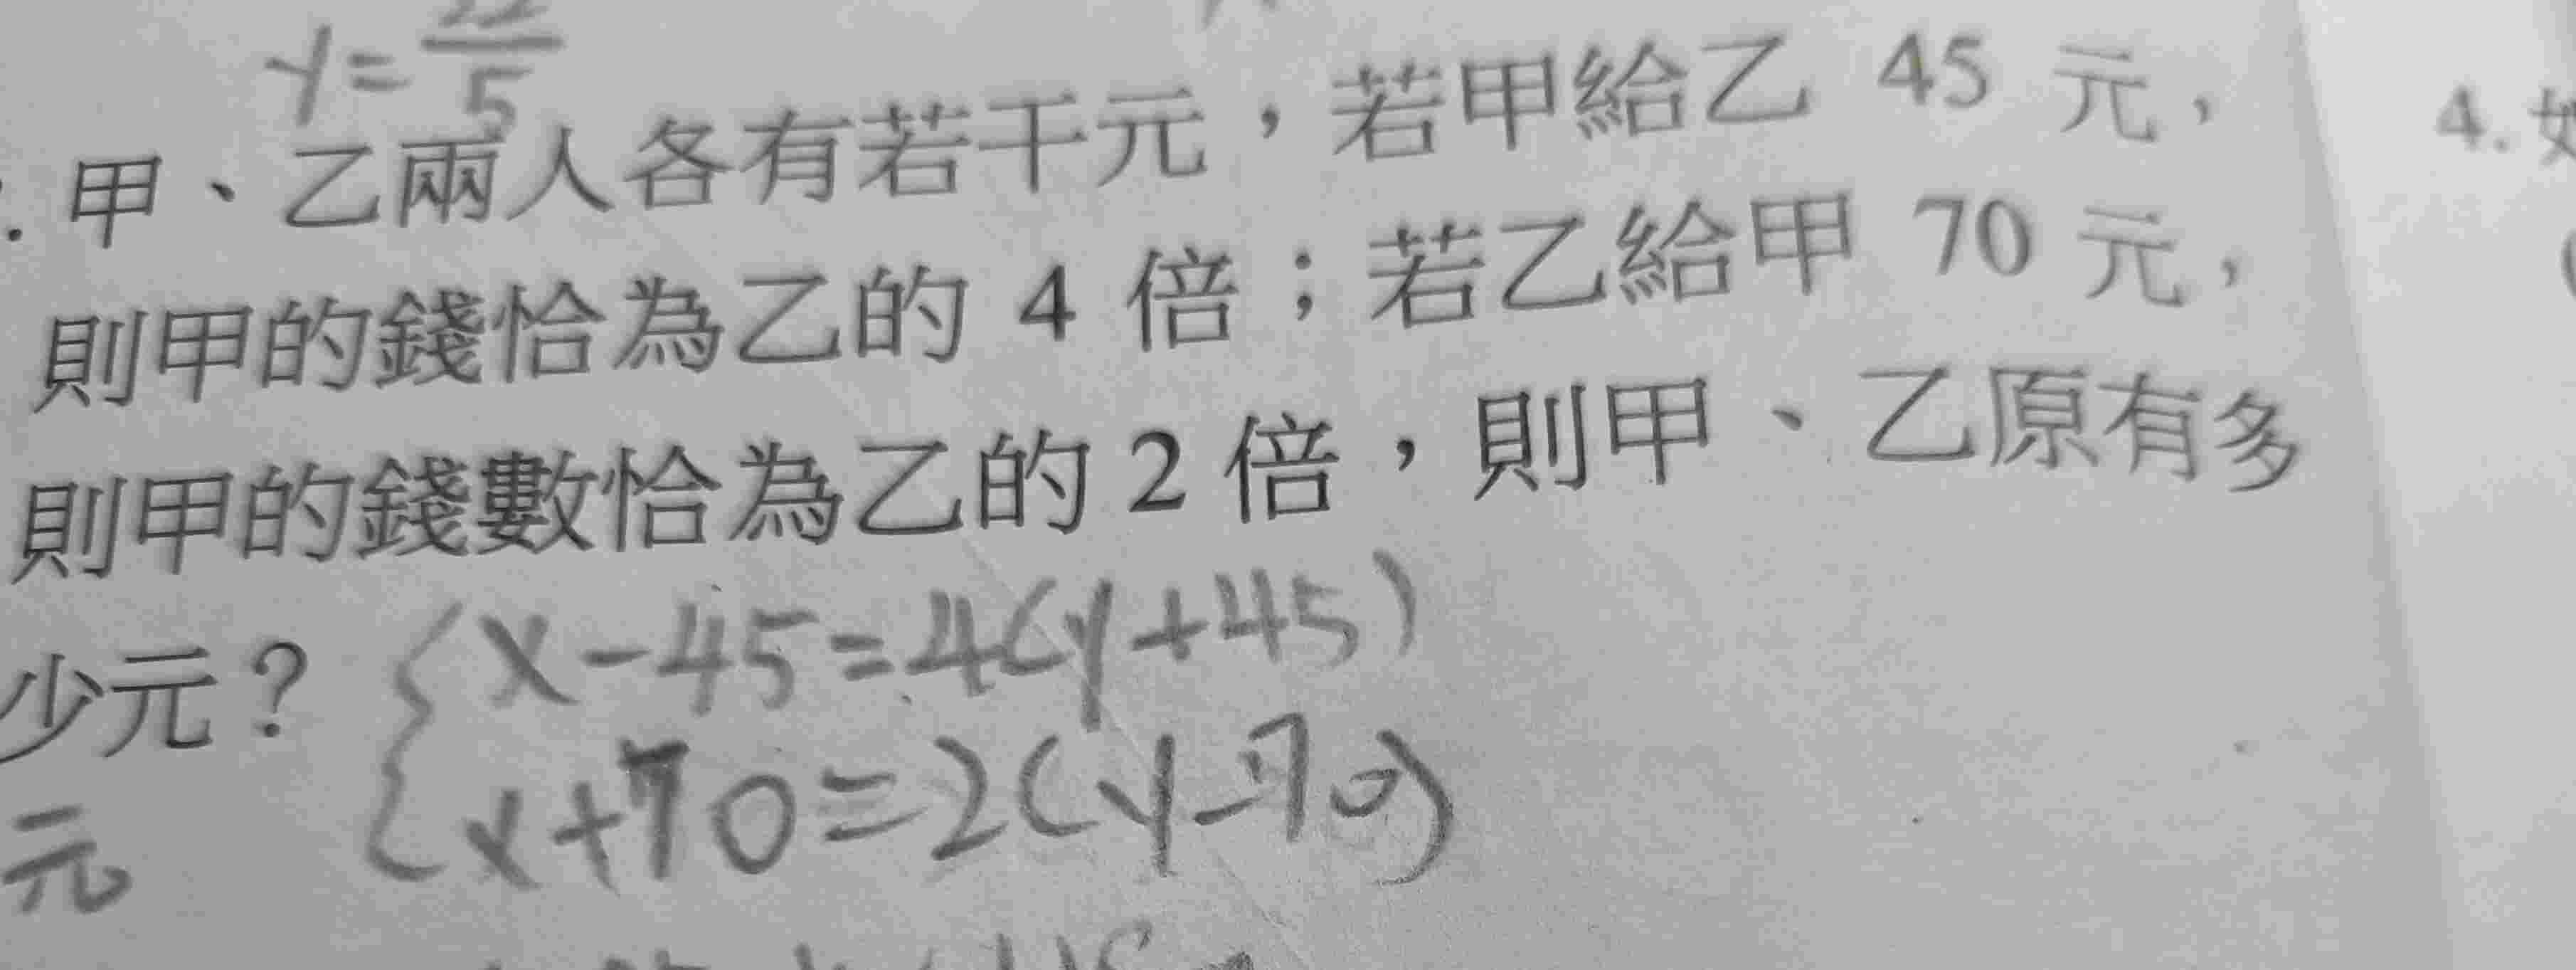 y=22/5
. 甲、乙兩人各有若干元，若甲給乙 45 元，
則甲的錢恰為乙的 4 倍；若乙給甲 70 元，
則甲的錢數恰為乙的 2 倍，則甲、乙原有多
少元？
{x-45=4(y+45)
x+70=2(y-70)
元
4. 如